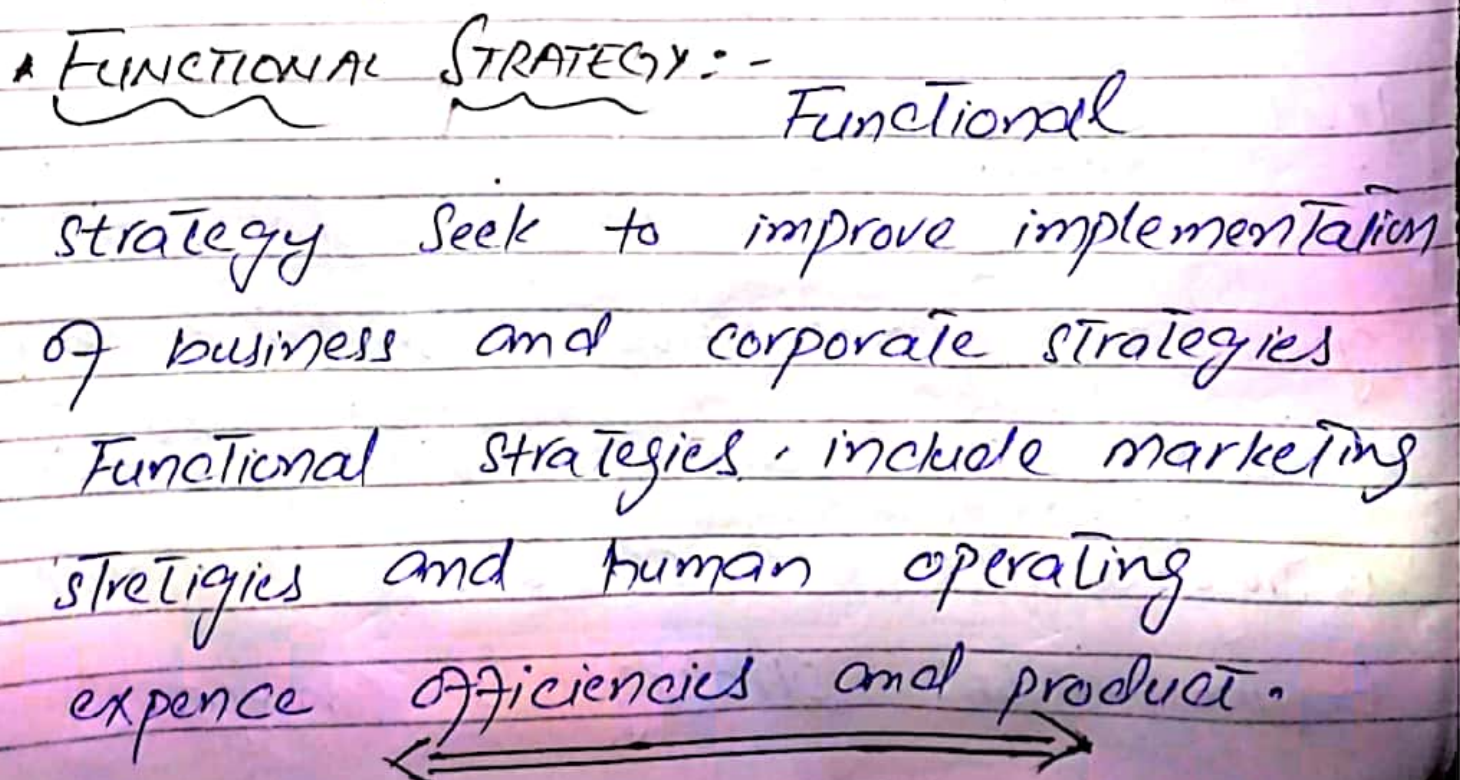 * FUNCTIONAL STRATEGY:-
Functional
strategy seek to improve implementation
of business and corporate strategies
Functional strategies. include marketing
stretigies and human operating
expence officiencies and product.